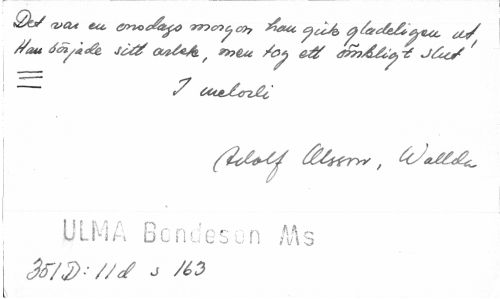 Det var en onsdags morgon han gick gladeligen ut,
Han började sitt arbete, men tog ett ömkligt slut
1 melodi
Adolf Olsson, Wallda
ULMA Bondeson Ms
351 D: 11 d s 163